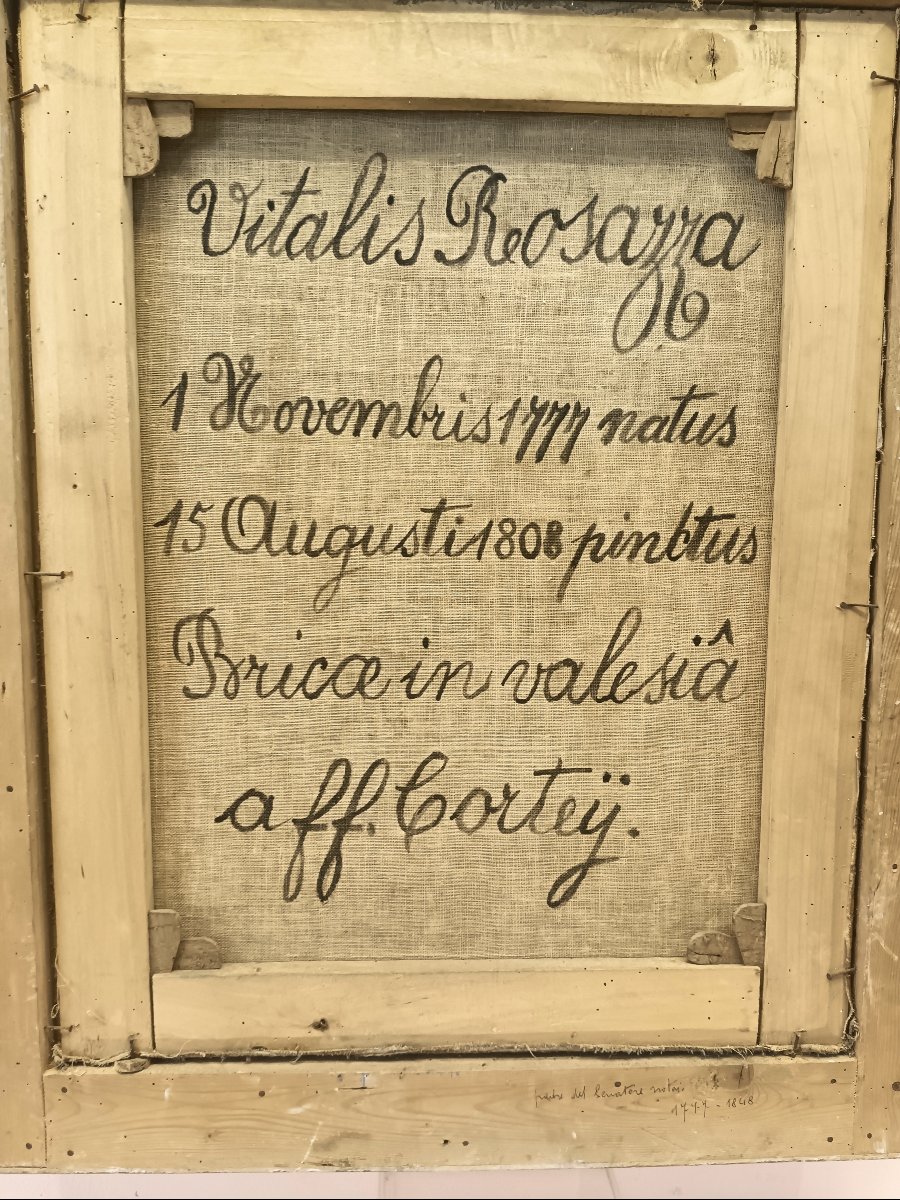 Vitalis Rosazza
1 Novembris 1777 natus
15 Augusti 1808 pinctus
Bricæ in valesiâ
a ff. Corteÿ.
padre del Senatore
1777 - 1848